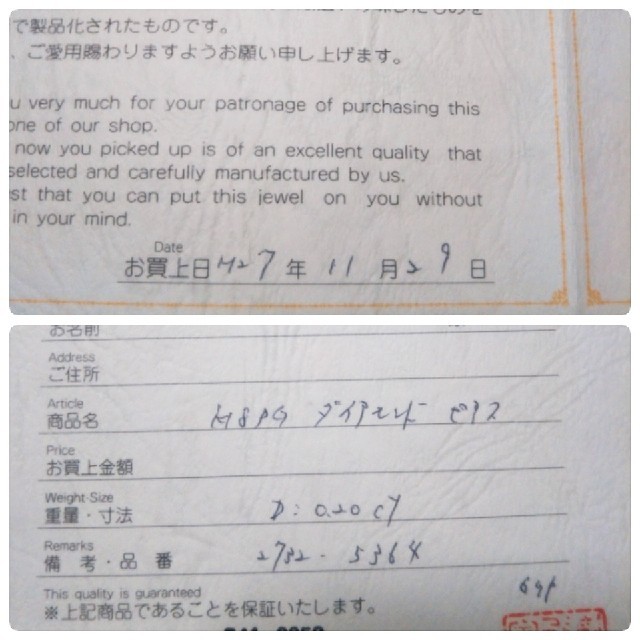 で製品化されたものです。
、ご愛用賜わりますようお願い申し上げます。
u very much for your patronage of purchasing this
one of our shop.
now you picked up is of an excellent quality that
selected and carefully manufactured by us.
st that you can put this jewel on you without
in your mind.
Date
お買上日 H27年 11月29日
お名前
Address
ご住所
Article
商品名 ダイアモンド ピアス
Price
お買上金額
Weight·Size
重量・寸法 D: 0.20 cT
Remarks
備考・品番 2732 - 5364
This quality is guaranteed
※上記商品であることを保証いたします。